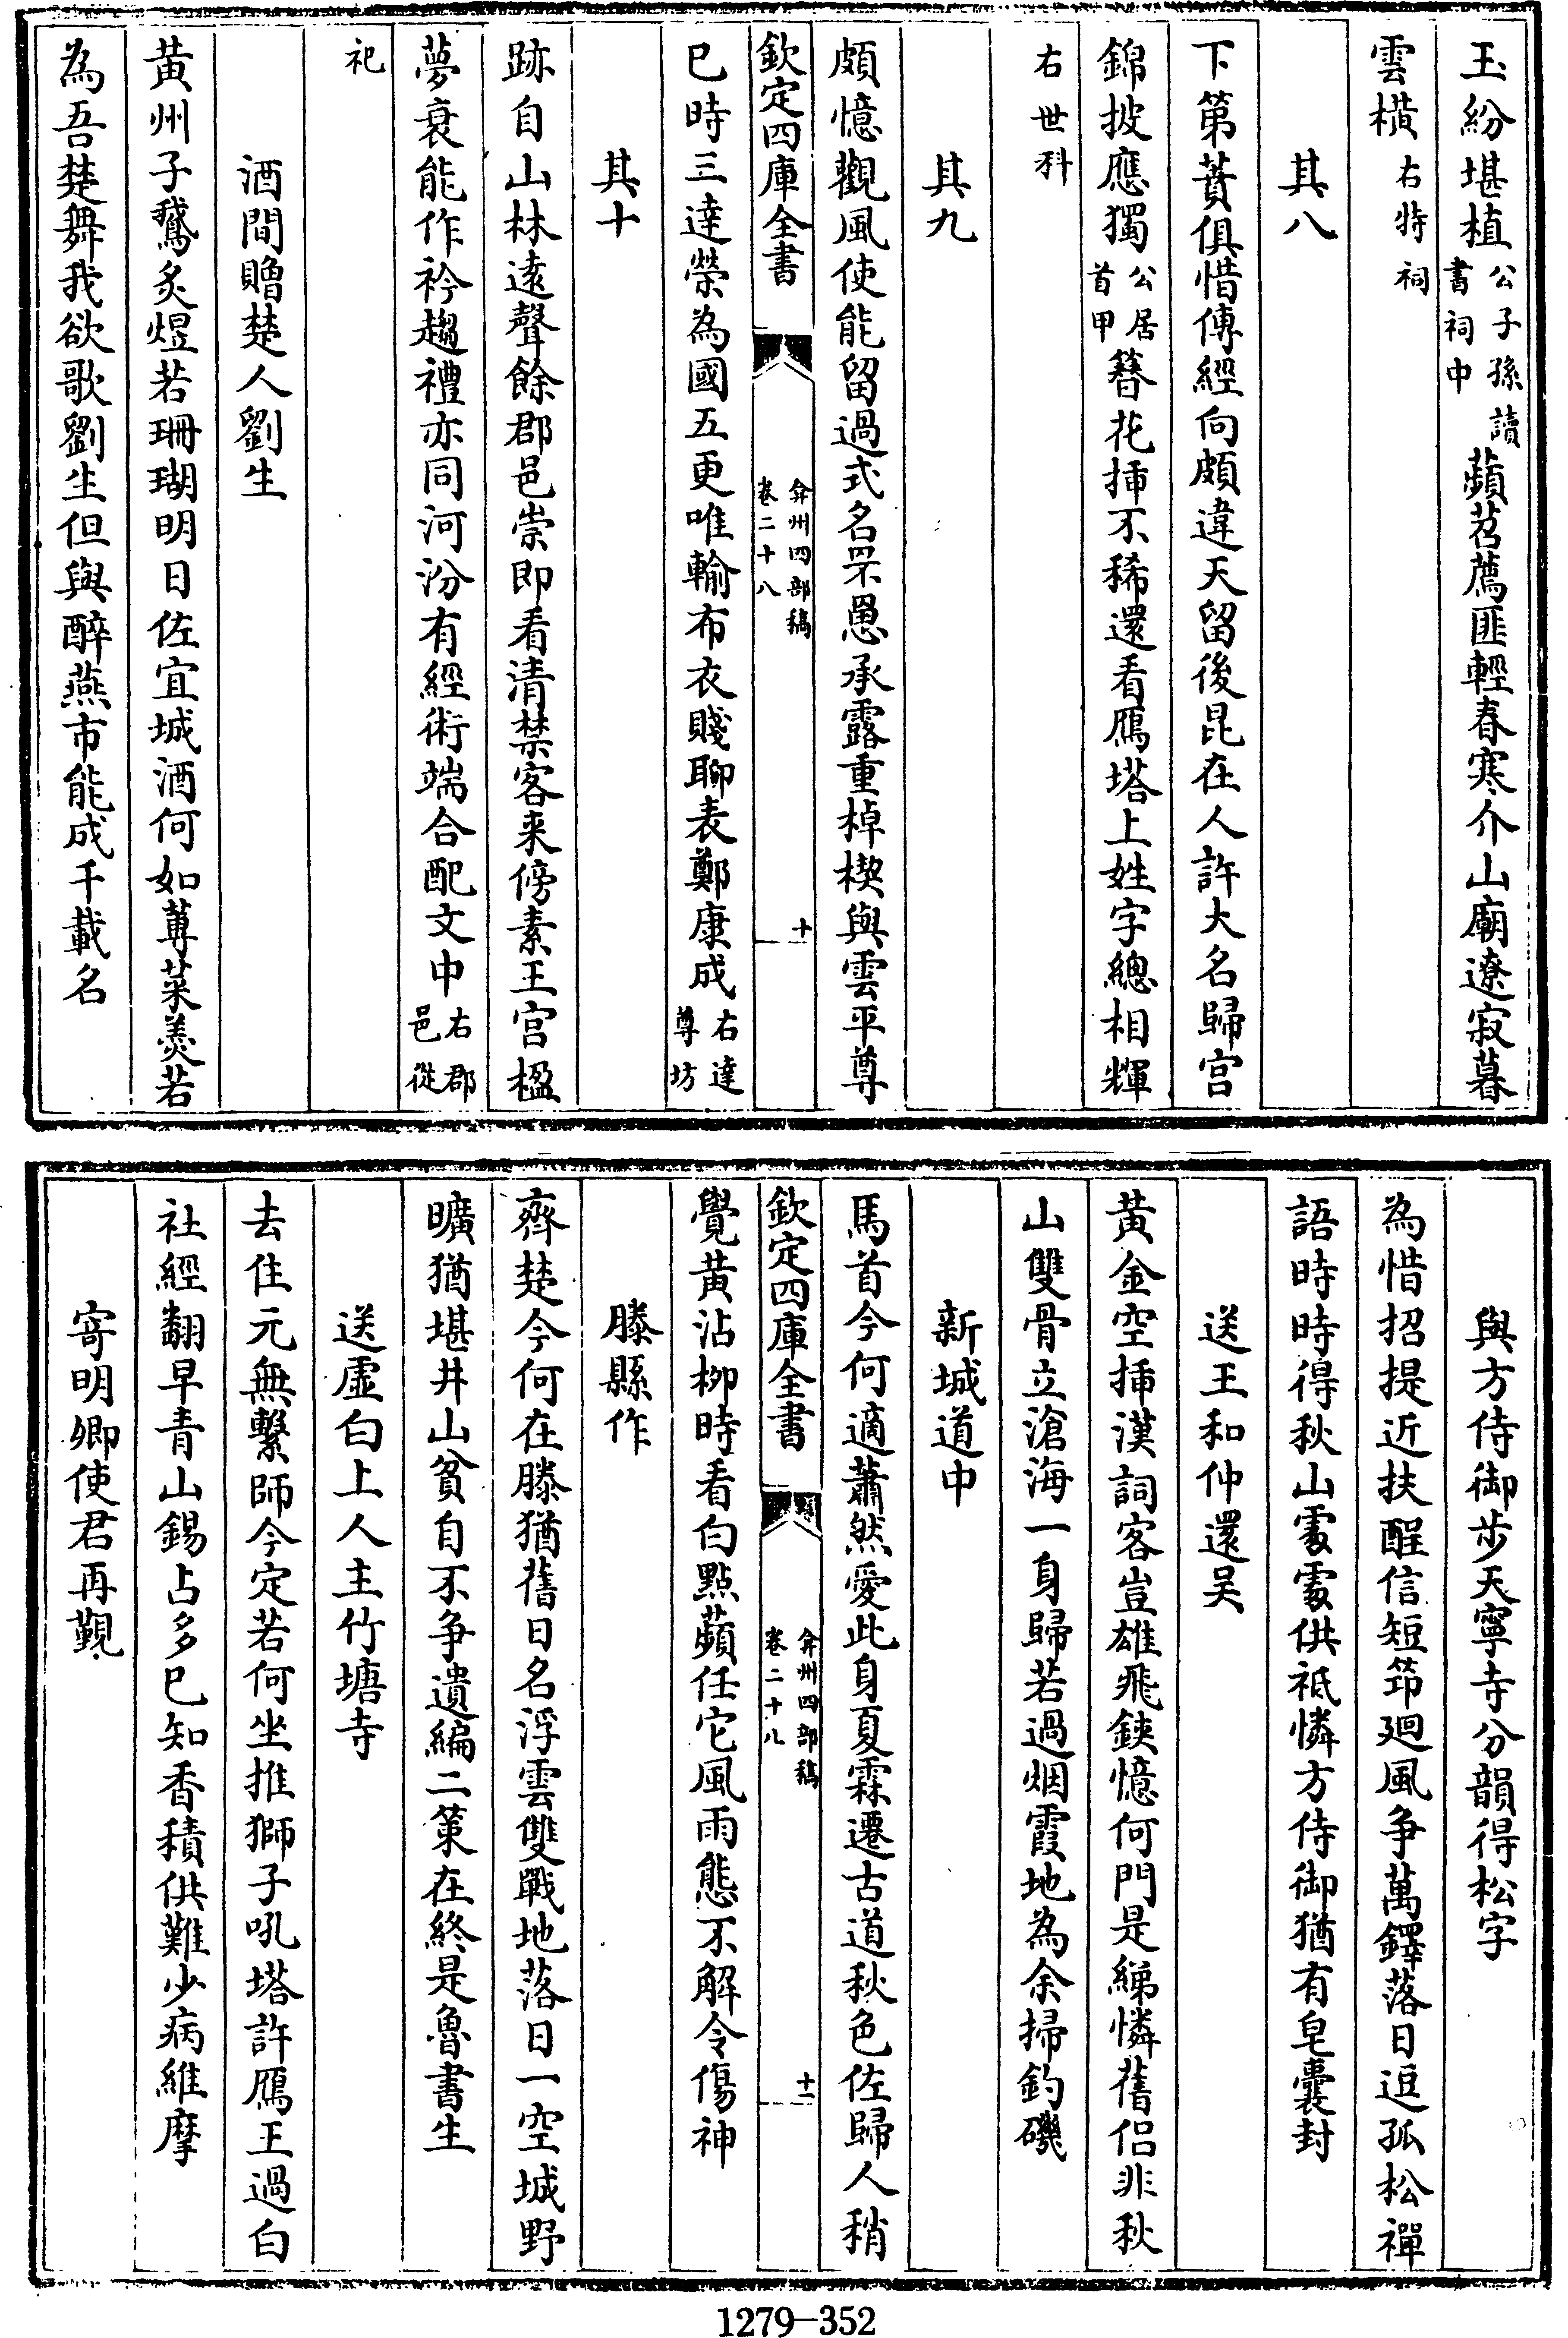 玉紛堪植公子孫讀書祠中蘋苕薦匪輕春寒介山廟遼寂暮
雲橫右特祠
其八
下第蕡俱惜傳經向頗違天留後昆在人許大名歸宫
錦披應獨公居首甲簪花挿不稀還看鴈塔上姓字總相輝
右世科
其九
頗憶觀風使能留過式名罘罳承露重棹楔與雲平尊
欽定四庫全書 弇州四部稿卷二十八 十
已時三達榮為國五更唯輸布衣賤聊表鄭康成右達尊坊
其十
跡自山林逺聲餘郡邑崇即看清禁客来傍素王宫楹
夢衰能作衿趨禮亦同河汾有經術端合配文中右郡邑從
祀
酒間贈楚人劉生
黄州子鵞炙煜若珊瑚明日佐宜城酒何如蓴菜羮若
為吾楚舞我欲歌劉生但與醉燕市能成千載名
與方侍御步天寧寺分韻得松字
為惜招提近扶酲信短笻廻風争萬鐸落日逗孤松禪
語時時得秋山䖏䖏供祗憐方侍御猶有皂囊封
送王和仲還吴
黄金空挿漢詞客豈雄飛鋏憶何門是綈憐舊侣非秋
山雙骨立滄海一身歸若過烟霞地為余掃釣磯
新城道中
馬首今何適蕭然愛此身夏霖遷古道秋色佐歸人稍
欽定四庫全書 弇州四部稿卷二十八 十一
覺黄沾栁時看白點蘋任它風雨態不解令傷神
滕縣作
齊楚今何在滕猶舊日名浮雲雙戰地落日一空城野
曠猶堪井山貧自不争遺編二策在終是魯書生
送虚白上人主竹塘寺
去住元無繫師今定若何坐推獅子吼塔許鴈王過白
社經翻早青山錫占多已知香積供難少病維摩
寄明卿使君再覲
1279-352